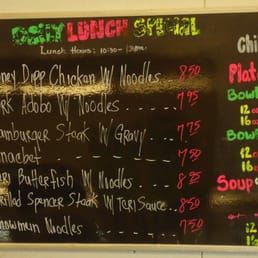 DAILY LUNCH SPECIAL
Lunch Hours: 10:30 -
ney Dipp Chicken W/ Noodles 8.50
rk Adobo W/ Noodles 7.95
amburger Steak W/ Gravy 7.75
nacbet 7.50
eri Butterfish W/ Noodles 8.95
rilled Spencer Steak W/ Teri Sauce 8.50
howmein Noodles 7.50
Chi
Plat
Bowl
12 o
16 oz
Bow
12
16
Soup
12